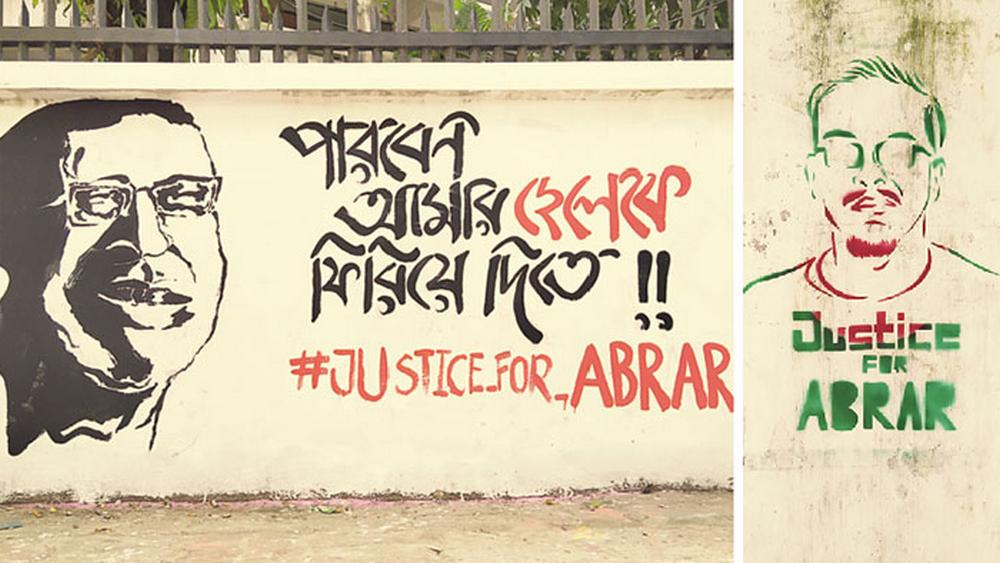 পারবেন
আমার ছেলেকে
ফিরিয়ে দিতে !!
#JUSTICE_FOR_ABRAR
Justice
FOR
ABRAR